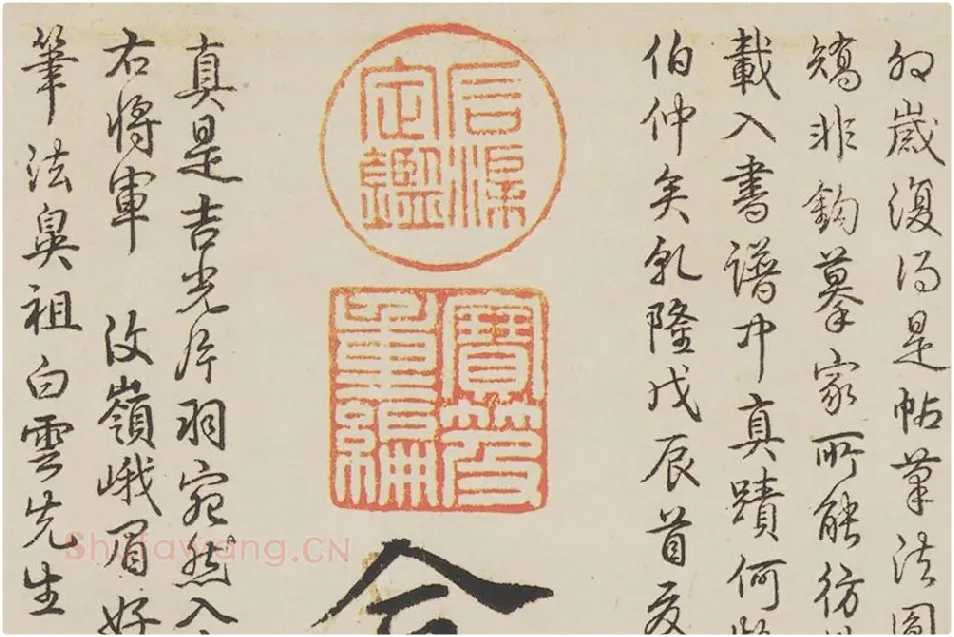 歲復得是帖筆法圓
矯非鈎摹家所能彷
載入書譜中真蹟何
伯仲矣乾隆戊辰首夏
石渠
定鑑
寶笈
重編
真是吉光片羽宛然入
右將軍 汶嶺峨眉好
筆法鼻祖白雲先生
Shufawang.CN